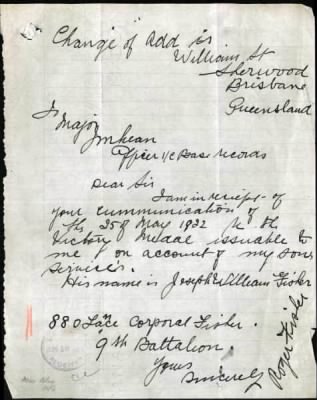 Change of Add is
William St
Sherwood
Brisbane
Queensland
To
Major
McLean
Officer i/c Base records
Dear Sir
I am in reciept of
your communication of
the 25th May 1932
Victory Medal issuable to
me on account of my Sons
Services.
His name is Joseph William Fisher
880 Lance Corporal Fisher.
9th Battalion.
Yours
Sincerely
Roger Fisher